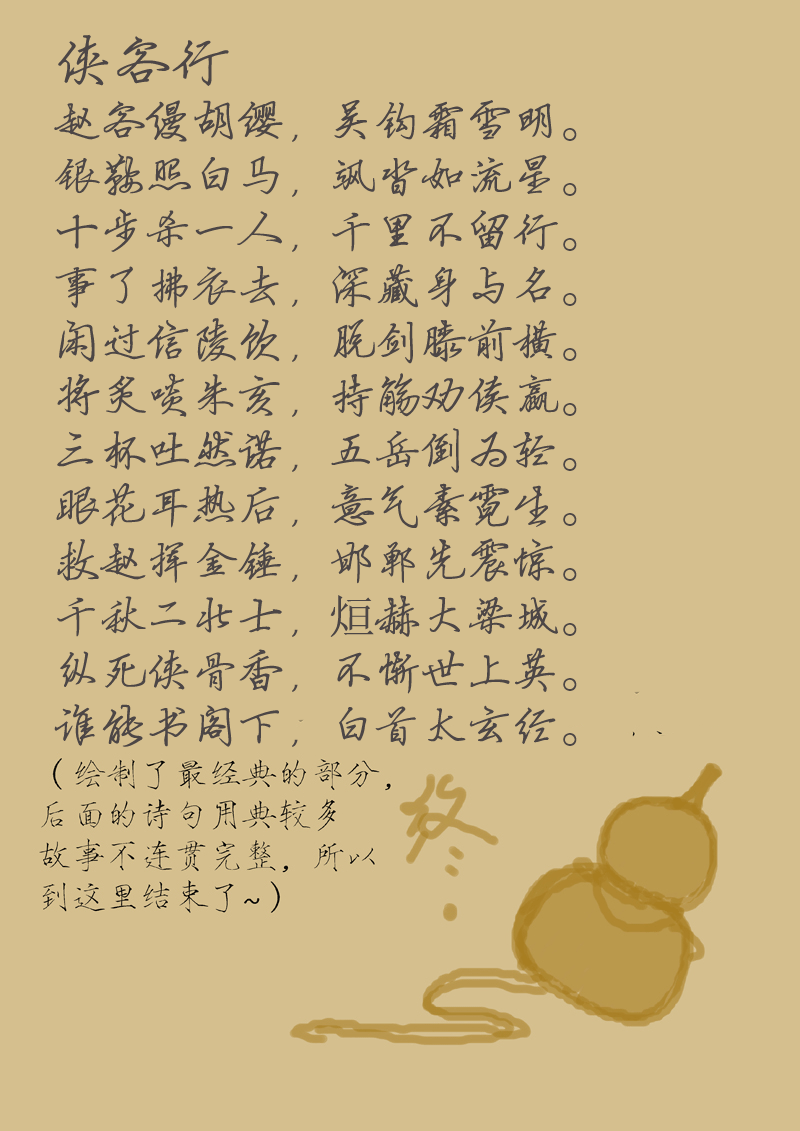 侠客行
赵客缦胡缨，吴钩霜雪明。
银鞍照白马，飒沓如流星。
十步杀一人，千里不留行。
事了拂衣去，深藏身与名。
闲过信陵饮，脱剑膝前横。
将炙啖朱亥，持觞劝侯嬴。
三杯吐然诺，五岳倒为轻。
眼花耳热后，意气素霓生。
救赵挥金锤，邯郸先震惊。
千秋二壮士，烜赫大梁城。
纵死侠骨香，不惭世上英。
谁能书阁下，白首太玄经。
（绘制了最经典的部分，
后面的诗句用典较多
故事不连贯完整，所以
到这里结束了~）
终